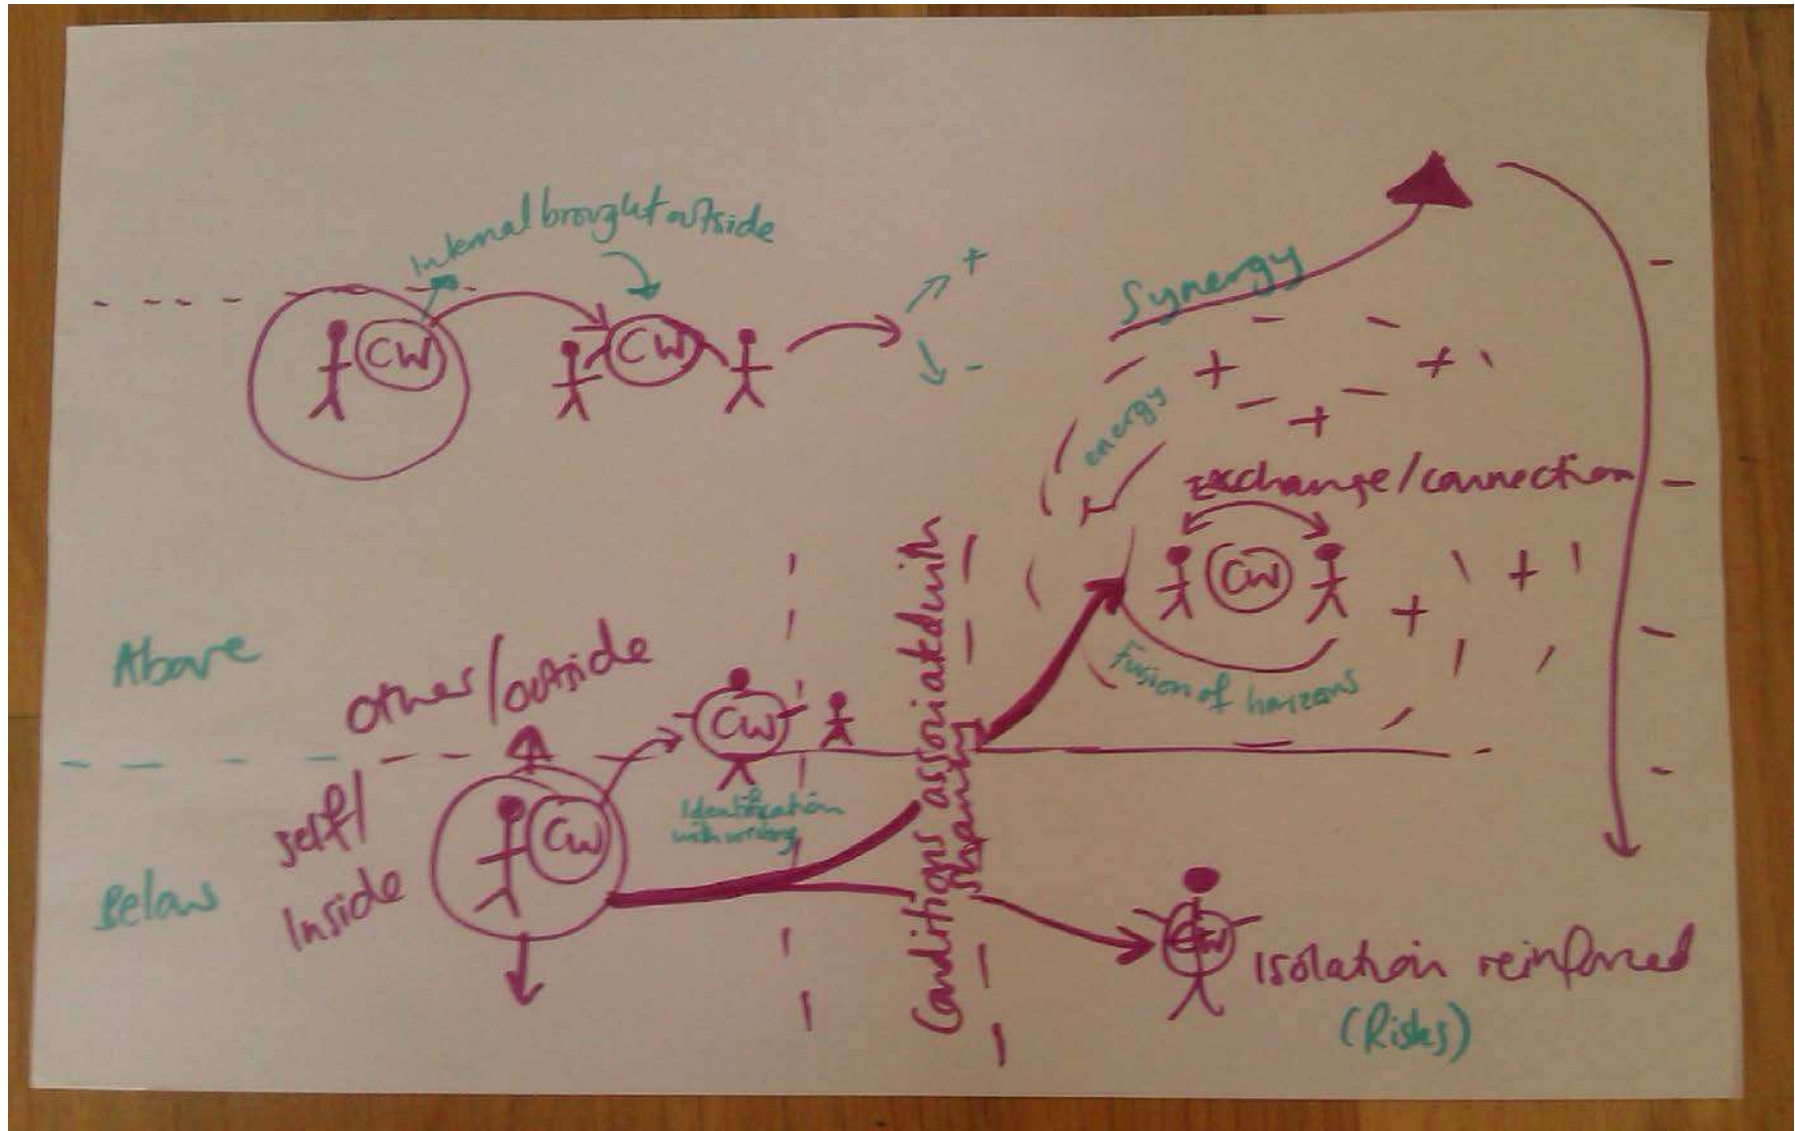 Internal brought outside
CW
CW
+
-
Synergy
energy
Exchange/connection
CW
Fusion of horizons
Above
Other/outside
CW
Identification
with writing
Conditions associated with
sharing
self/
Inside
CW
Below
CW
Isolation reinforced
(Risks)